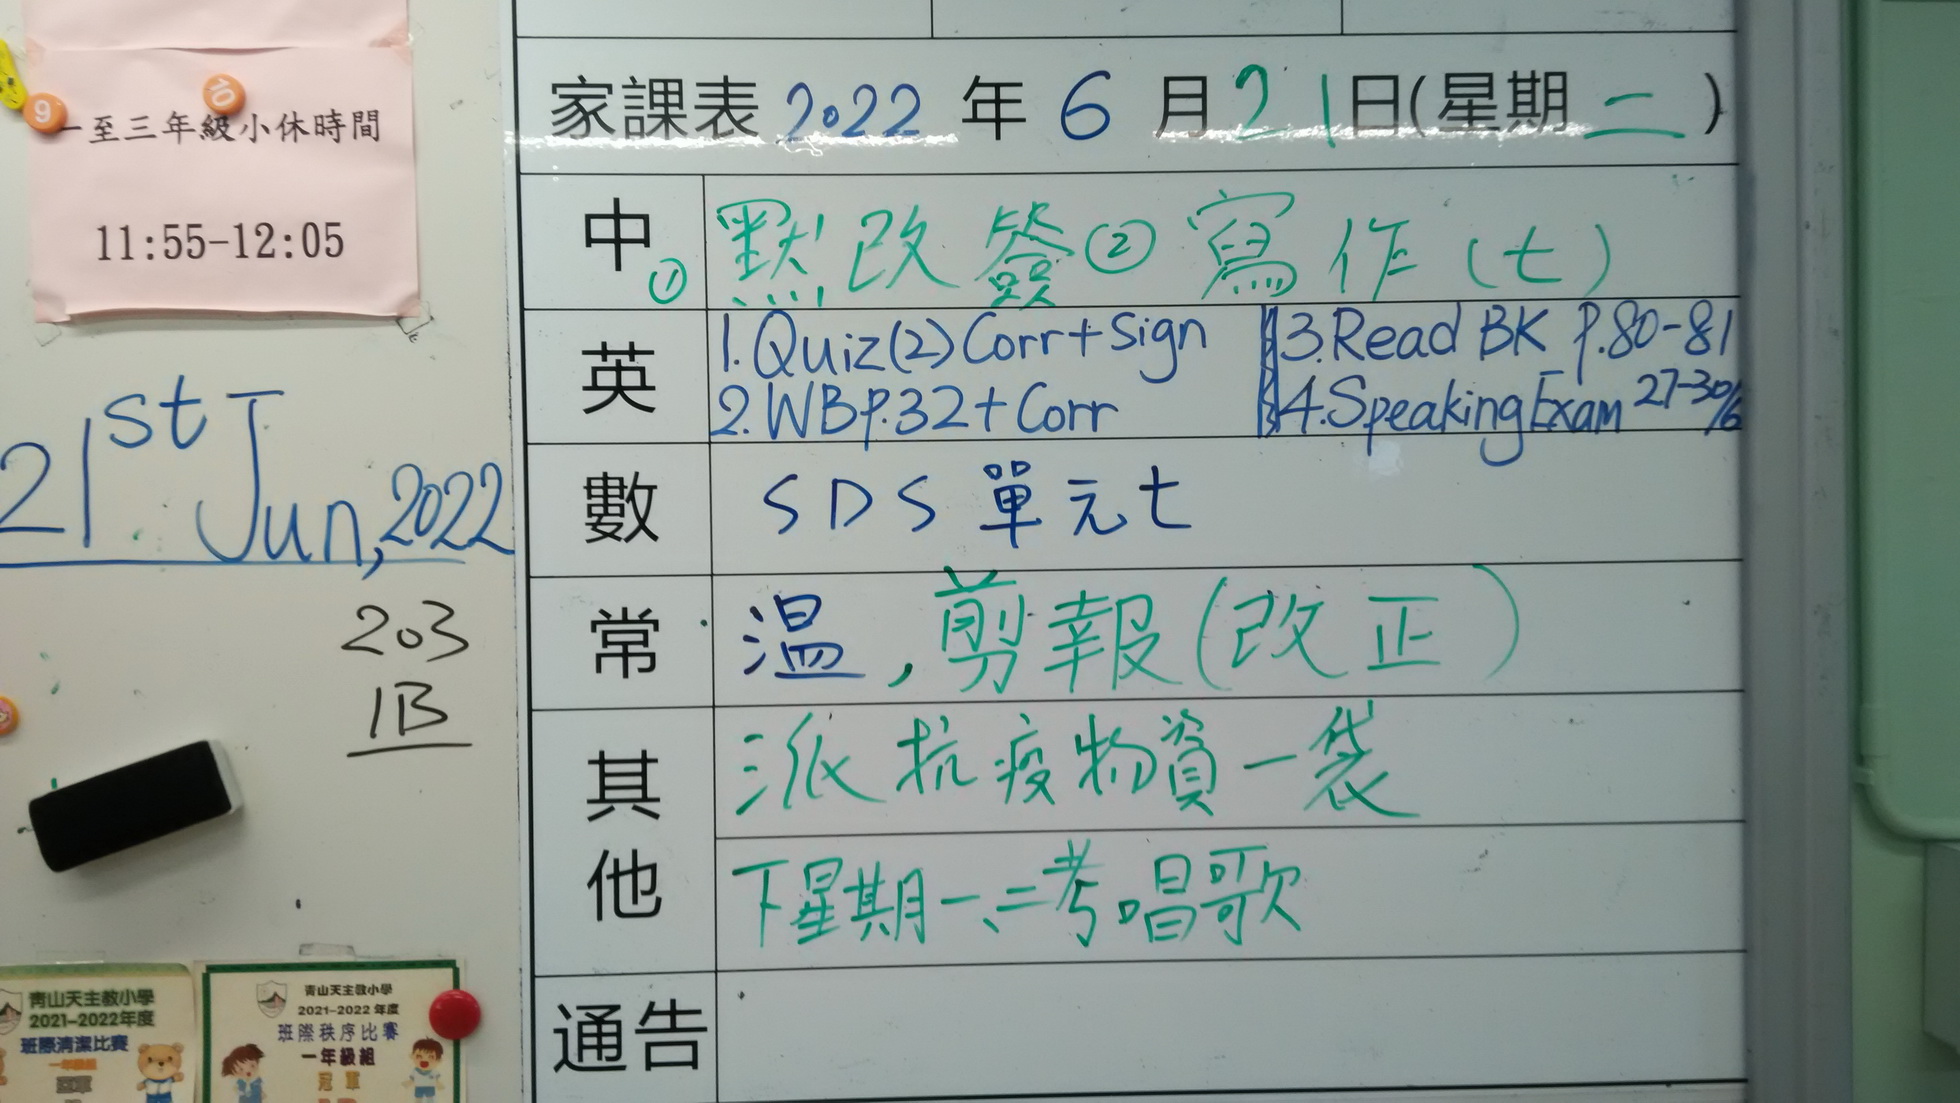 一至三年級小休時間
11:55-12:05
21st Jun, 2022
203
1B
青山天主教小學
2021-2022年度
班際清潔比賽
一年級組
青山天主教小學
2021-2022 年度
班際秩序比賽
一年級組
冠軍
家課表 2022 年 6 月 21 日(星期 二 )
中 ① 默改簽 ② 寫作(七)
英 1. Quiz(2) Corr + Sign 3. Read BK P.80-81
2. WB P.32 + Corr 4. Speaking Exam 27-30/6
數 SDS 單元七
常 温,剪報(改正)
其他 派抗疫物資一袋
下星期一、二考唱歌
通告
9
10